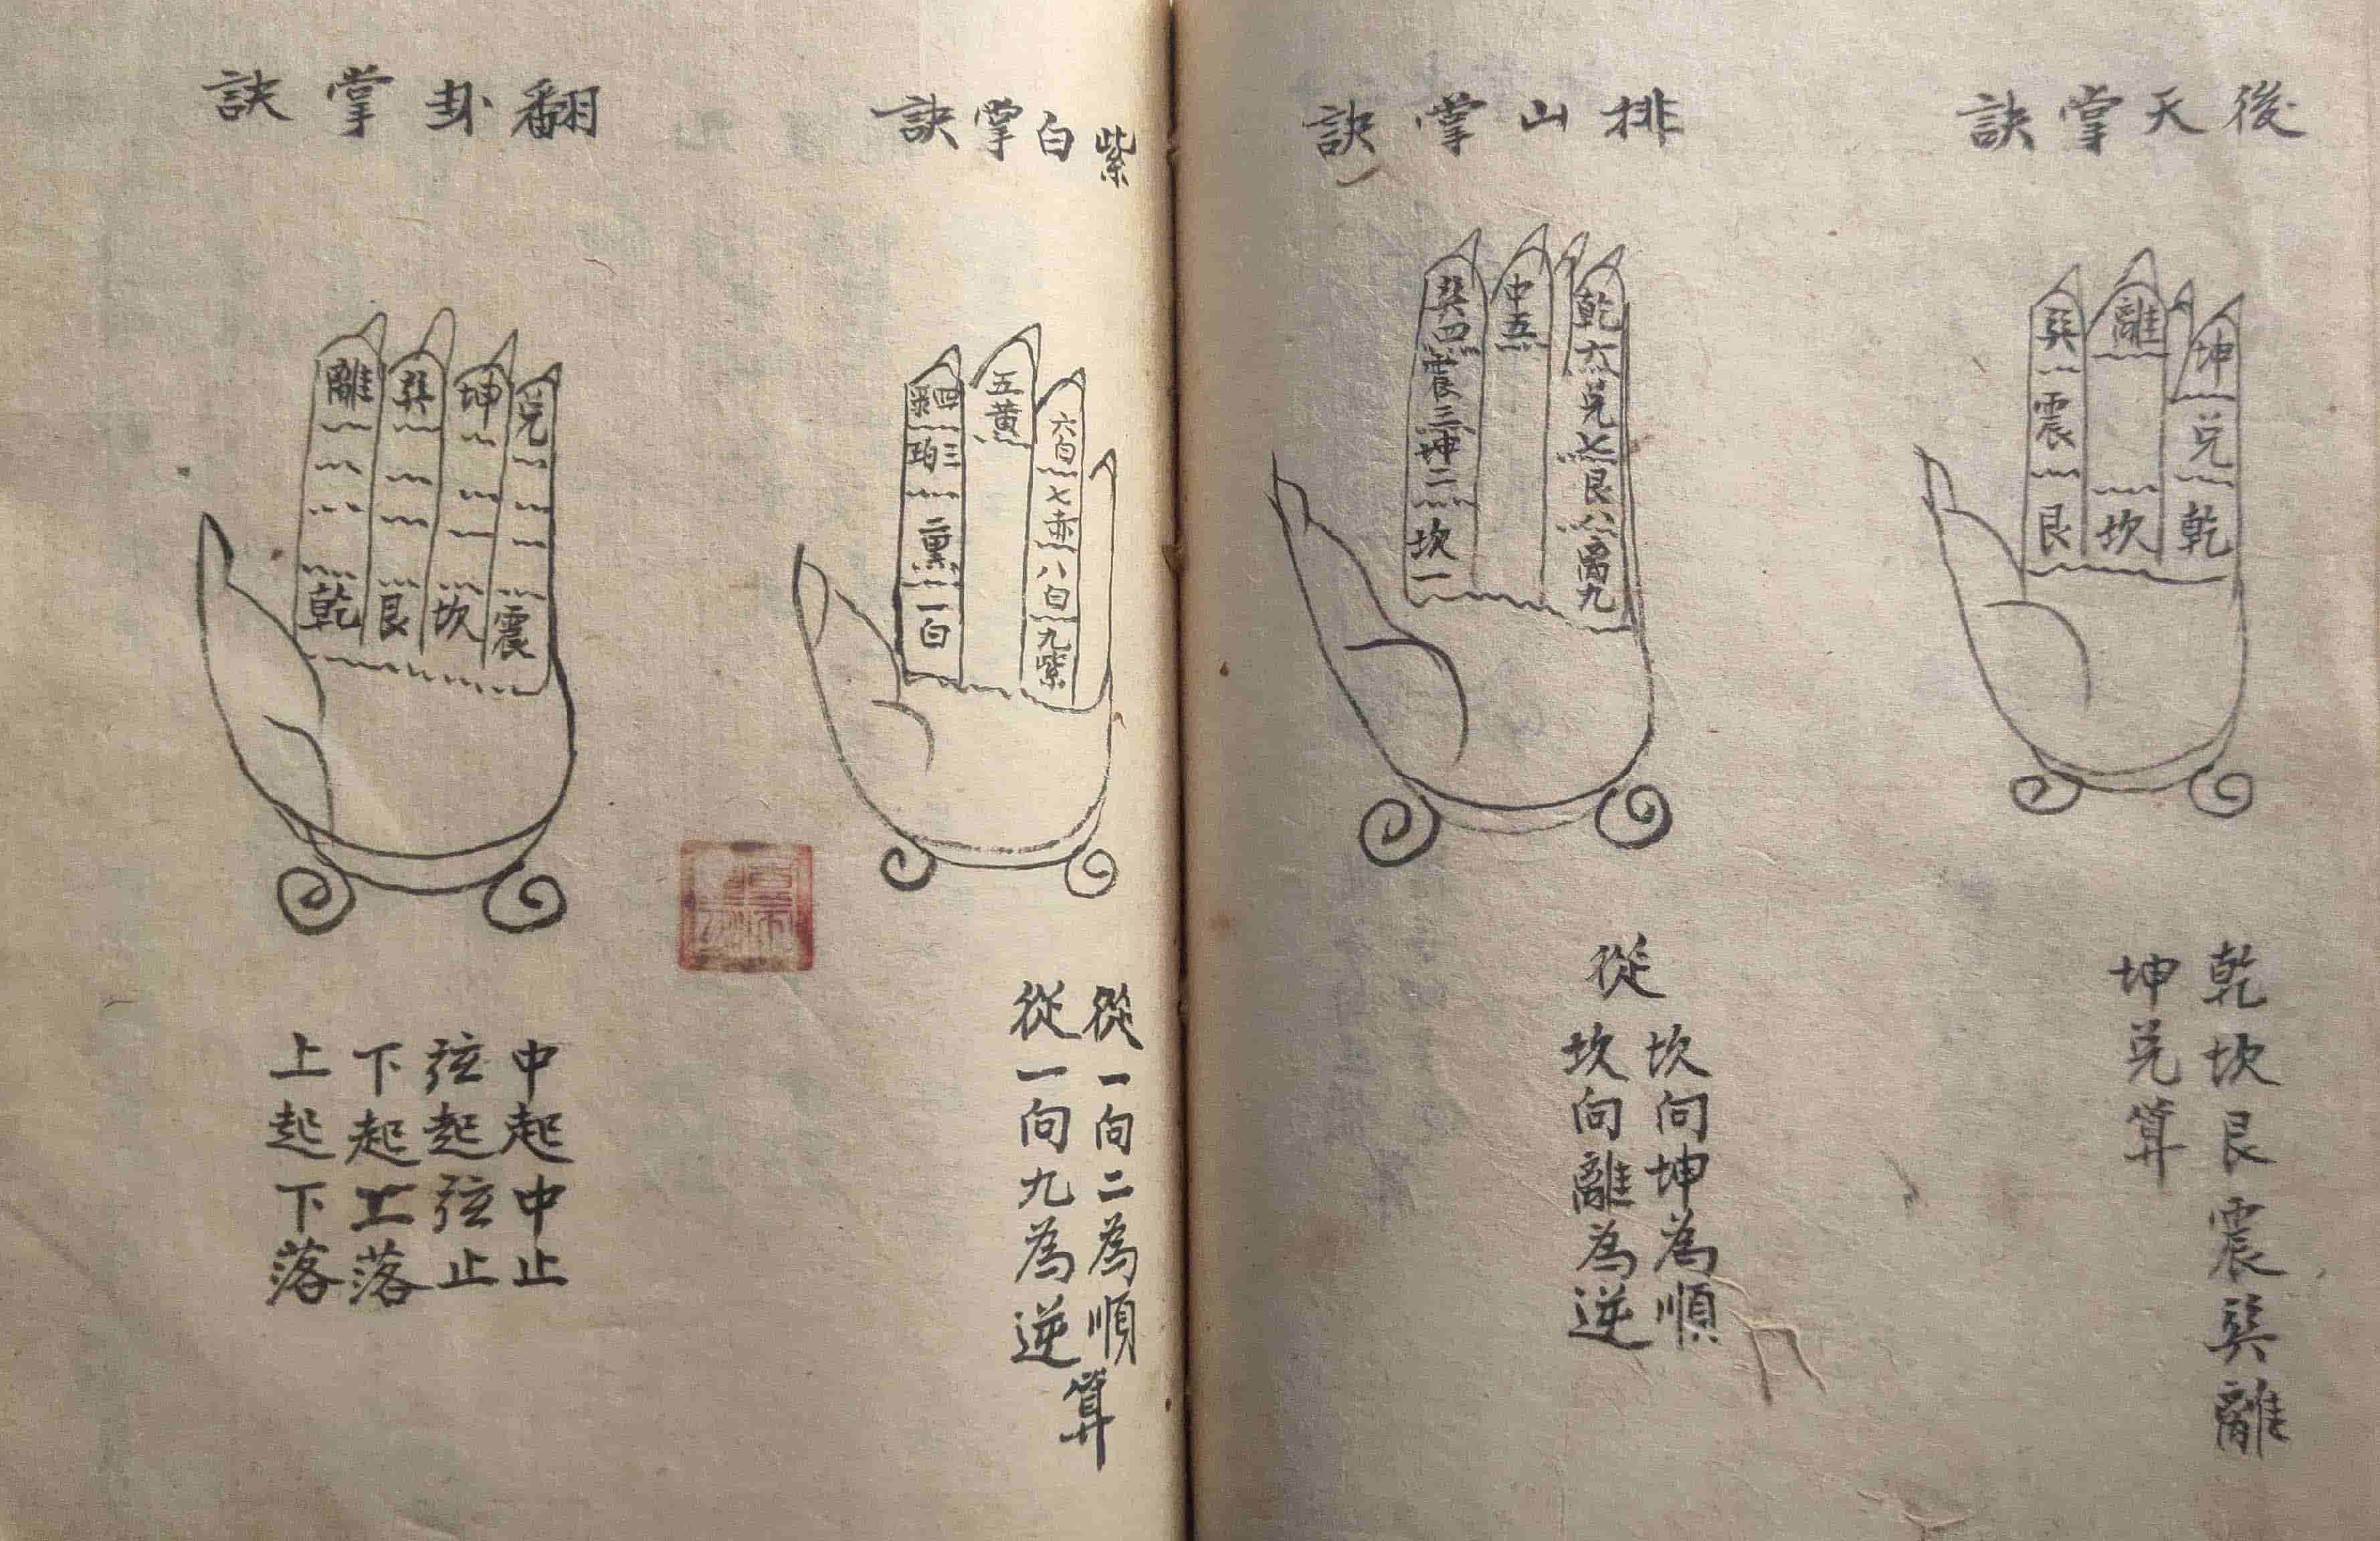 後天掌訣
巽
震
艮
離
坎
坤
兑
乾
乾坎艮震巽離
坤兑算
排山掌訣
巽四
震三
坤二
坎一
中五
乾六
兑七
艮八
離九
從
坎向坤為順
坎向離為逆
紫白掌訣
四綠
三碧
二黑
一白
五黄
六白
七赤
八白
九紫
從一向二為順
從一向九為逆
算
翻卦掌訣
離
乾
巽
艮
坤
坎
兑
震
中起中止
弦起弦止
下起上落
上起下落